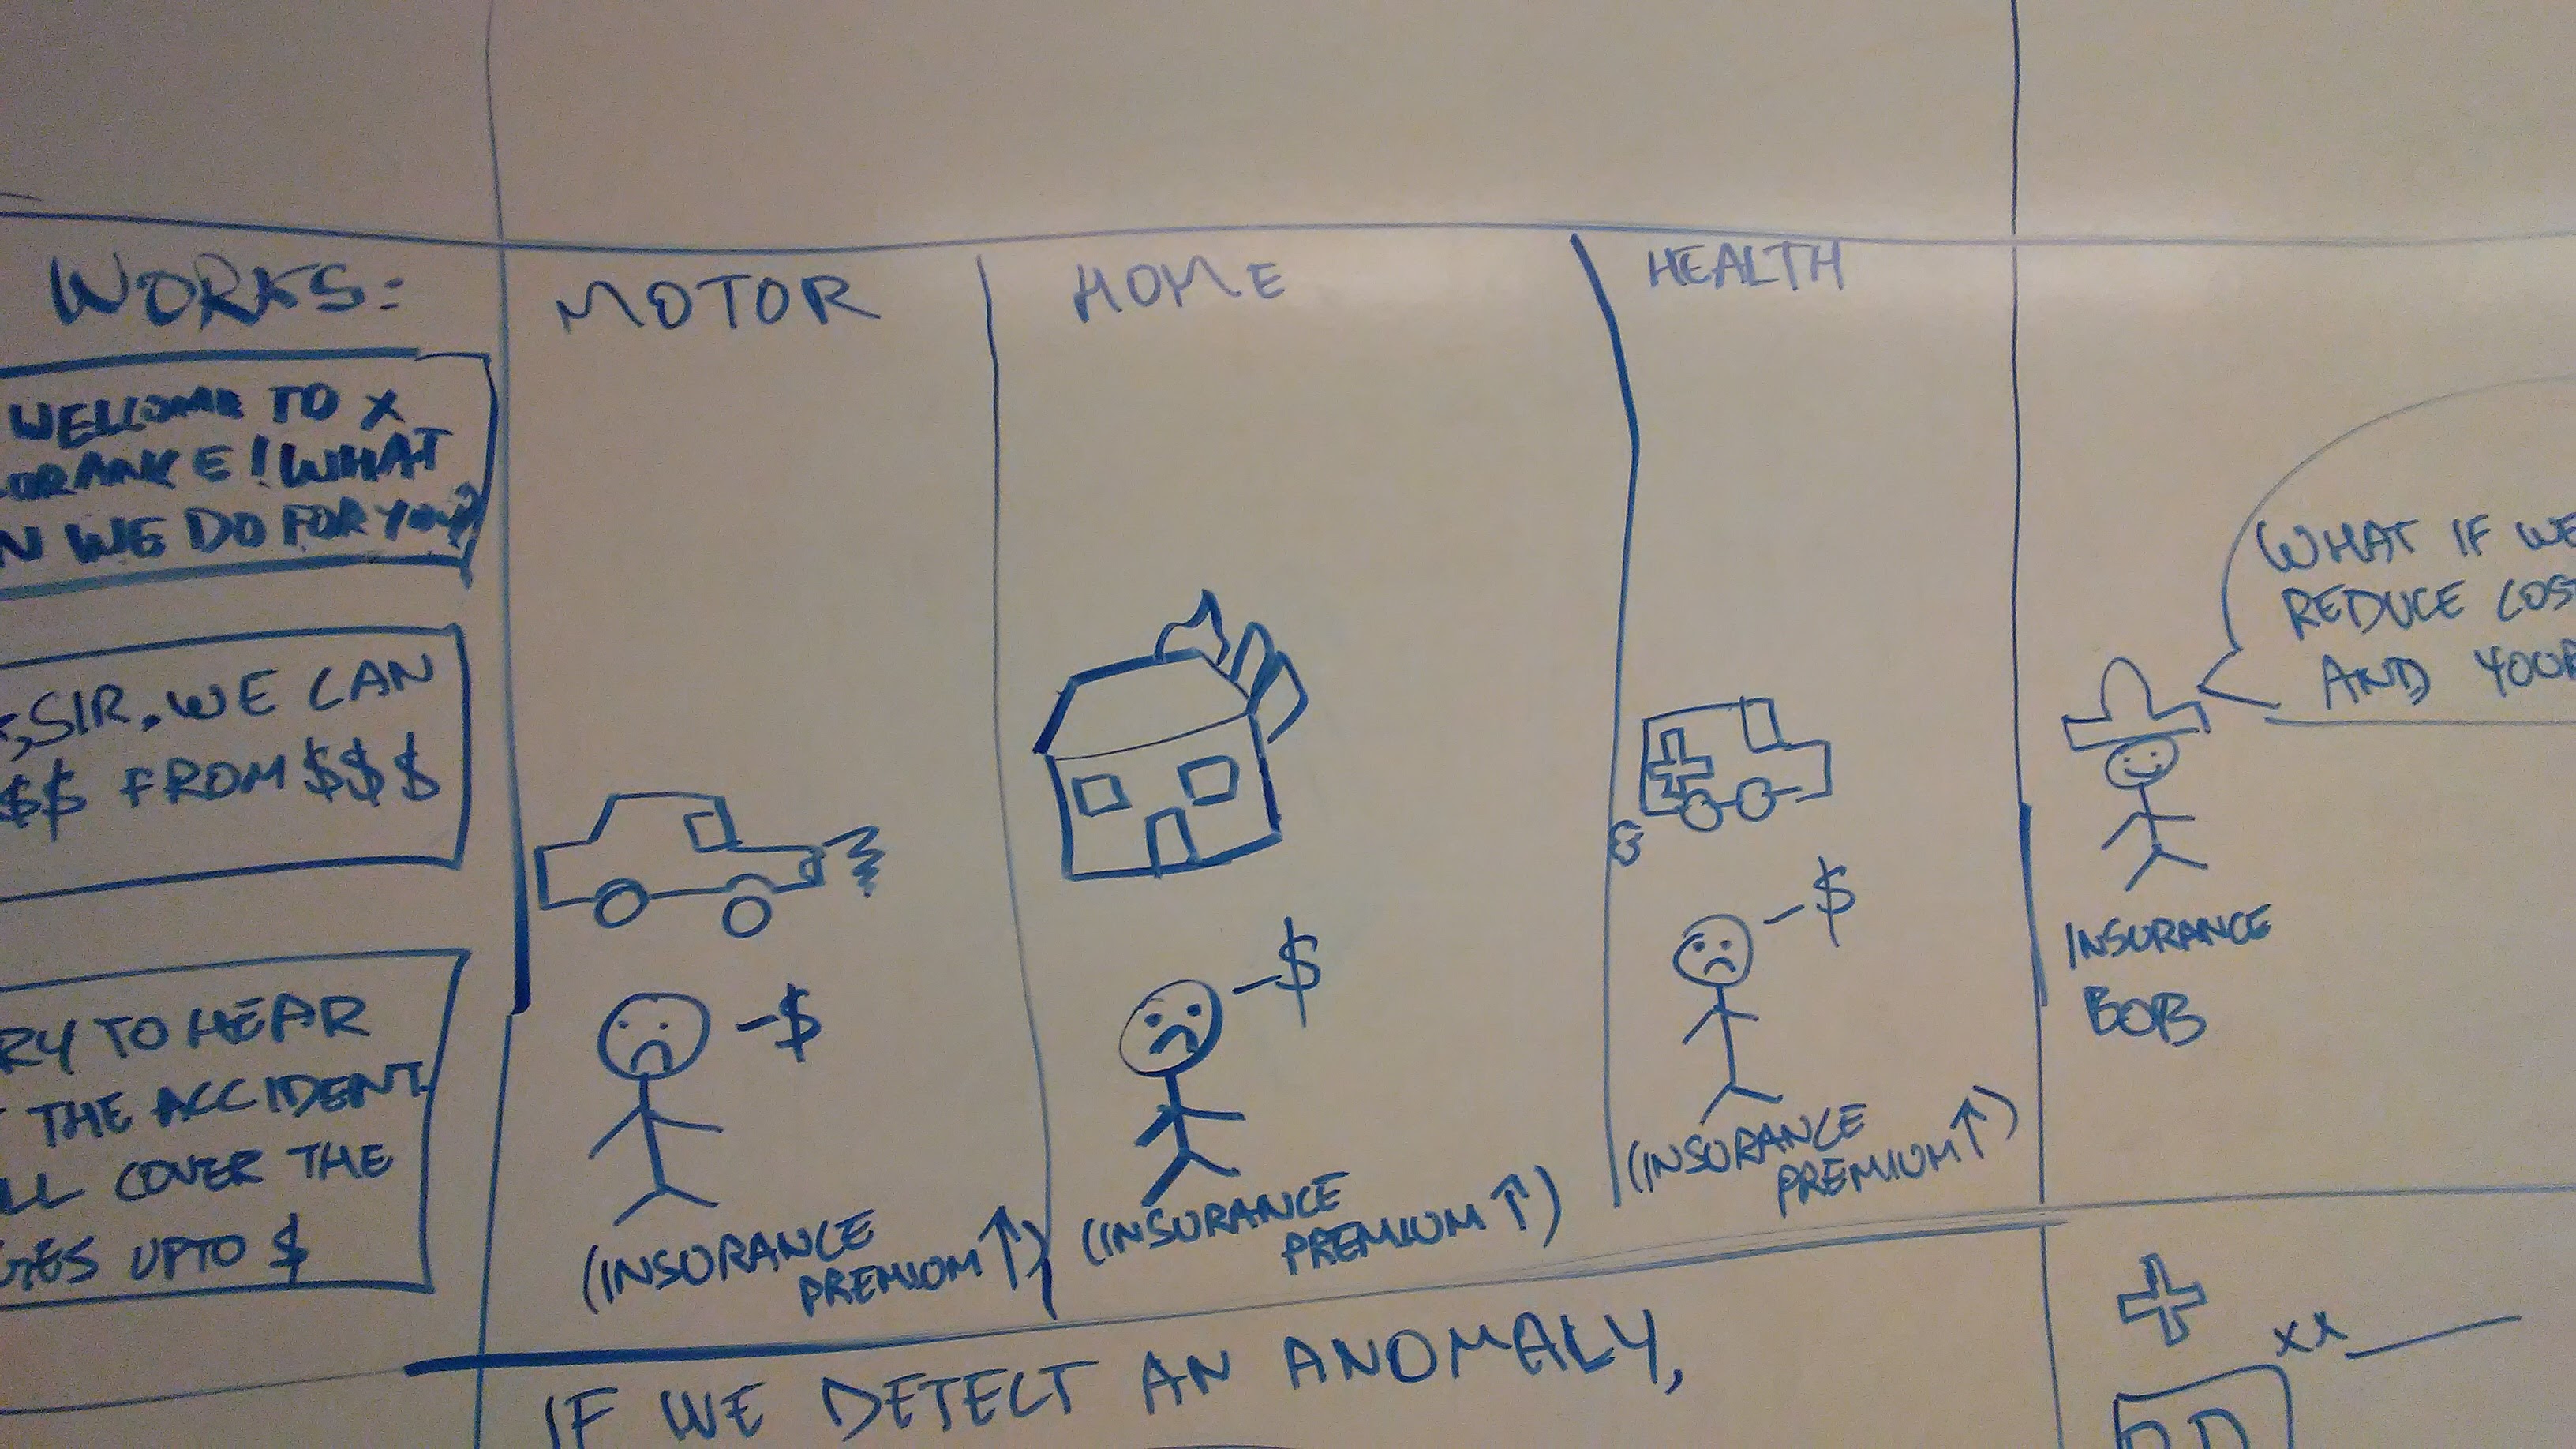 WORKS:
WELLOME TO X
ORANCE! WHAT
N WE DO FOR YOU?
SIR. WE CAN
$$ FROM $$$
RY TO HEAR
THE ACCIDENT.
LL COVER THE
GES UPTO $
MOTOR
-$
(INSURANCE
PREMIUM ↑)
HOME
-$
(INSURANCE
PREMIUM ↑)
HEALTH
-$
(INSURANCE
PREMIUM ↑)
WHAT IF WE
REDUCE COS
AND YOUR
INSURANCE
BOB
IF WE DETECT AN ANOMALY,
XX